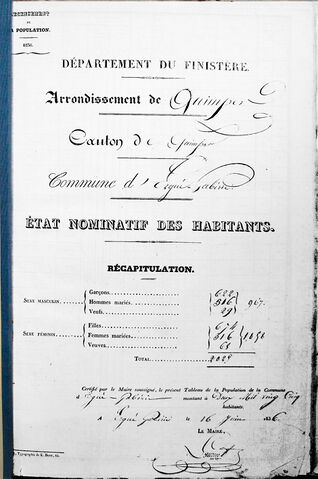 RECENSEMENT
DE
LA POPULATION.
1836.
DÉPARTEMENT DU FINISTERE.
Arrondissement de Quimper
Canton de Quimper
Commune d'Ergué Gabéric
ÉTAT NOMINATIF DES HABITANTS.
RÉCAPITULATION.
SEXE MASCULIN
Garçons 622
Hommes mariés 316
Veufs 29
967.
SEXE FÉMININ
Filles 674
Femmes mariées 316
Veuves 68
1058
TOTAL 2025
Certifié par le Maire soussigné, le présent Tableau de la Population de la Commune
d Ergué Gabéric montant à Deux Mil vingt Cinq
habitants.
A Ergué Gabéric le 16 Juin 1836
LE MAIRE,